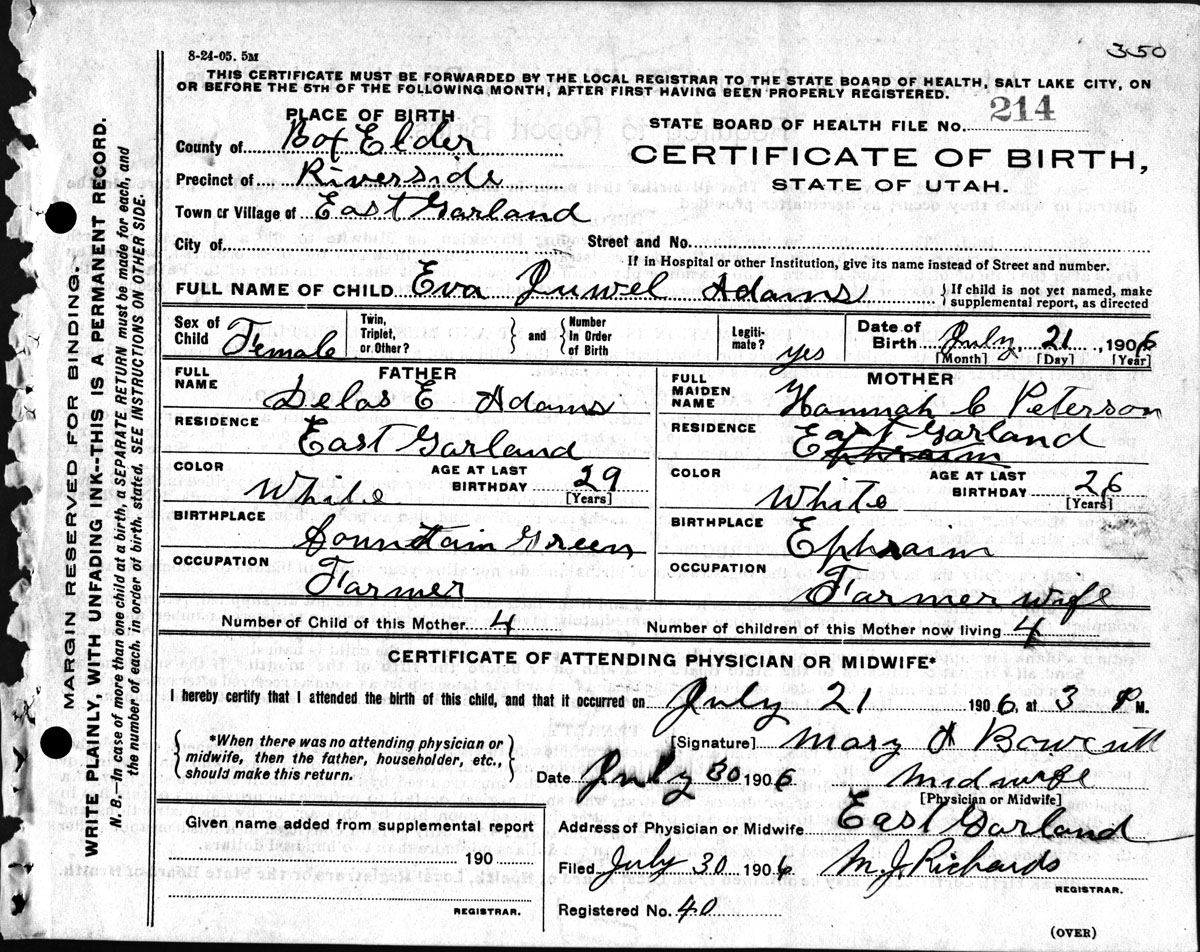 8-24-05. 5M
350
THIS CERTIFICATE MUST BE FORWARDED BY THE LOCAL REGISTRAR TO THE STATE BOARD OF HEALTH, SALT LAKE CITY, ON
OR BEFORE THE 5TH OF THE FOLLOWING MONTH, AFTER FIRST HAVING BEEN PROPERLY REGISTERED.
PLACE OF BIRTH
County of Box Elder
Precinct of Riverside
Town or Village of East Garland
STATE BOARD OF HEALTH FILE No. 214
CERTIFICATE OF BIRTH,
STATE OF UTAH.
City of Street and No.
If in Hospital or other Institution, give its name instead of Street and number.
FULL NAME OF CHILD Eva Juwel Adams } If child is not yet named, make
supplemental report, as directed
Sex of Child Female
Twin, Triplet, or Other? } and { Number in Order of Birth
Legitimate? yes
Date of Birth July 21, 1906
[Month] [Day] [Year]
FATHER
FULL NAME Delos E Adams
RESIDENCE East Garland
COLOR White AGE AT LAST BIRTHDAY 29 [Years]
BIRTHPLACE Fountain Green
OCCUPATION Farmer
MOTHER
FULL MAIDEN NAME Hannah C Peterson
RESIDENCE East Garland
Ephraim
COLOR White AGE AT LAST BIRTHDAY 26 [Years]
BIRTHPLACE Ephraim
OCCUPATION Farmer wife
Number of Child of this Mother 4 Number of children of this Mother now living 4
CERTIFICATE OF ATTENDING PHYSICIAN OR MIDWIFE*
I hereby certify that I attended the birth of this child, and that it occurred on July 21 1906, at 3 P M.
{ *When there was no attending physician or
midwife, then the father, householder, etc.,
should make this return. }
[Signature] Mary A
Date July 30 1906 Midwife
[Physician or Midwife]
Given name added from supplemental report
190
REGISTRAR.
Address of Physician or Midwife East Garland
Filed July 30 1906 M. J. Richards
REGISTRAR.
Registered No. 40
(OVER)
MARGIN RESERVED FOR BINDING.
WRITE PLAINLY, WITH UNFADING INK--THIS IS A PERMANENT RECORD.
N. B.—In case of more than one child at a birth, a SEPARATE RETURN must be made for each, and
the number of each, in order of birth, stated. SEE INSTRUCTIONS ON OTHER SIDE.